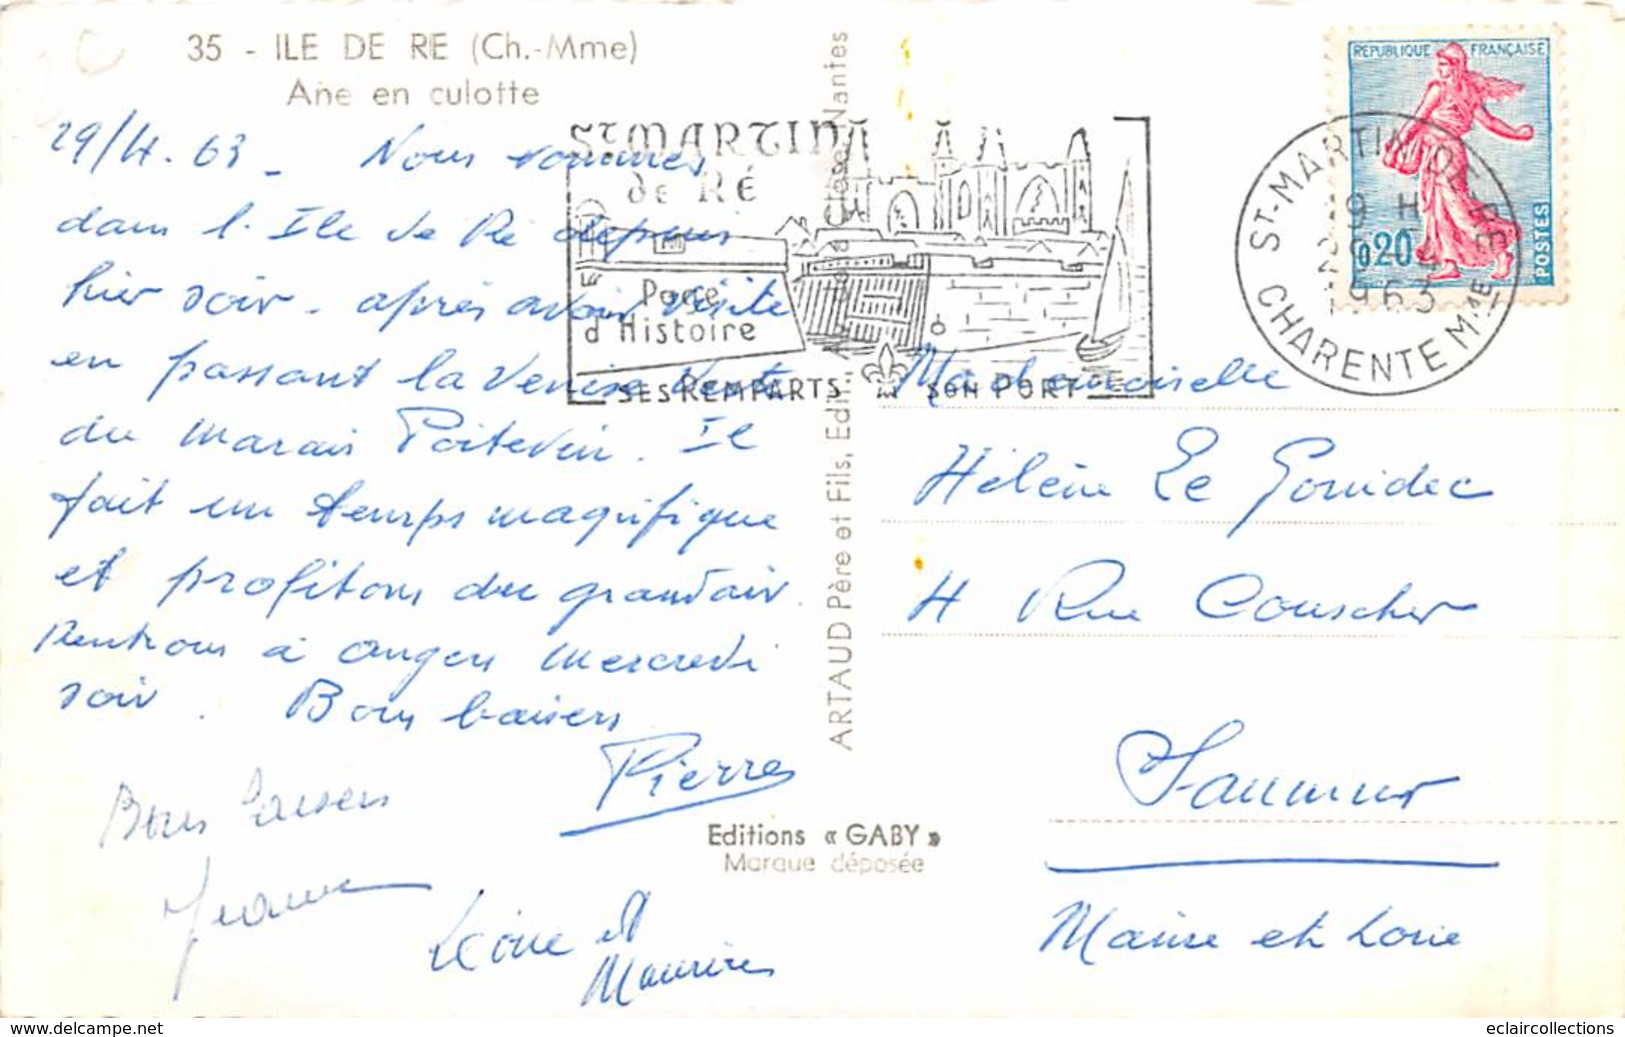 35 - ILE DE RE (Ch.-Mme)
Ane en culotte
29/4.63 - Nous sommes
dans l. Ile de Ré depuis
hier soir - après avoir visité
en passant la Venise Verte
du Marais Poitevin. Il
fait un temps magnifique
et profitons du grand air.
Rentrons à Angers mercredi
soir. Bons baisers
Pierre
Bons baisers
Léone et
Maurice
ST MARTIN
de RÉ
Page
d'Histoire
SES REMPARTS SON PORT
ARTAUD Père et Fils, Edit., Nantes
Editions « GABY »
Marque déposée
REPUBLIQUE FRANÇAISE
0,20
POSTES
ST-MARTIN DE RE
19 H
29-4
1963
CHARENTE MME
Mademoiselle
Hélène Le Gouidec
4 Rue Couscher
Saumur
Maine et Loire
www.delcampe.net
eclaircollections